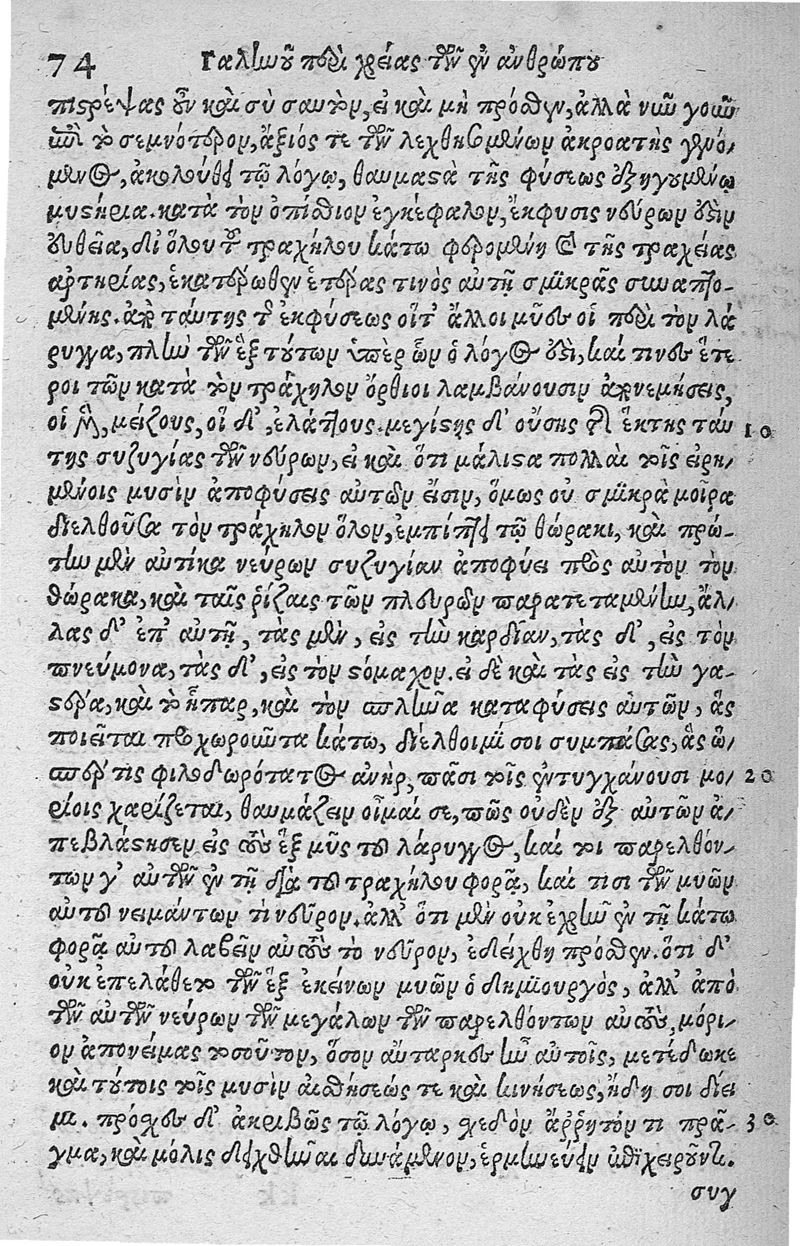 74 Γαληνοῦ περὶ χρείας τῶν ἐν ἀνθρώπου
πιστρέψας οὖν καὶ σὺ σαυτὸν, εἰ καὶ μὴ πρόσθεν, ἀλλὰ νῦν γοῦν
ἐπὶ τὸ σεμνότερον, ἄξιός τε τῶν λεχθησομένων ἀκροατὴς γενό-
μενος, ἀκολούθει τῷ λόγῳ, θαυμαστὰ τῆς φύσεως ἐξηγουμένῳ
μυστήρια. κατὰ τὸν ὀπίσθιον ἐγκέφαλον, ἔκφυσις νεύρων ἐστὶν
εὐθεῖα, δι' ὅλου τοῦ τραχήλου κάτω φερομένη καὶ τῆς τραχείας
ἀρτηρίας, ἑκατέρωθεν ἑτέρας τινὸς αὐτῇ σμικρᾶς συναπτο-
μένης. ἀπὸ ταύτης τῆς ἐκφύσεως οἵτ' ἄλλοι μῦες οἱ περὶ τὸν λά
ρυγγα, πλὴν τῶν ἓξ τούτων ὑπὲρ ὧν ὁ λόγος ἐστὶ, καί τινες ἕτε
ροι τῶν κατὰ τὸν τράχηλον ὄρθιοι λαμβάνουσιν ἀπονεμήσεις,
οἱ μὲν, μείζους, οἱ δ', ἐλάττους. μεγίστης δ' οὔσης τῆς ἕκτης ταύ 10
της συζυγίας τῶν νεύρων, εἰ καὶ ὅτι μάλιστα πολλαὶ τοῖς εἰρη-
μένοις μυσὶν ἀποφύσεις αὐτῶν εἰσιν, ὅμως οὐ σμικρὰ μοῖρα
διελθοῦσα τὸν τράχηλον ὅλον, ἐμπίπτει τῷ θώρακι, καὶ πρώ-
την μὲν αὐτίκα νεύρων συζυγίαν ἀποφύει πρὸς αὐτὸν τὸν
θώρακα, καὶ ταῖς ῥίζαις τῶν πλευρῶν παρατεταμένην, ἄλ-
λας δ' ἐπ' αὐτῇ, τὰς μὲν, εἰς τὴν καρδίαν, τὰς δ', εἰς τὸν
πνεύμονα, τὰς δ', εἰς τὸν στόμαχον. εἰ δὲ καὶ τὰς εἰς τὴν γα-
στέρα, καὶ τὸ ἧπαρ, καὶ τὸν σπλῆνα καταφύσεις αὐτῶν, ἃς
ποιεῖται προχωροῦντα κάτω, διέλθοιμί σοι συμπάσας, ἃς ὥ-
σπερ τις φιλοδωρότατος ἀνὴρ, πᾶσι τοῖς ἐντυγχάνουσι μο- 20
ρίοις χαρίζεται, θαυμάζειν οἶμαί σε, πῶς οὐδὲν ἐξ αὐτῶν ἀ-
πεβλάστησεν εἰς τοὺς ἓξ μῦς τοῦ λάρυγγος, καί τοι παρελθόν-
των γ' αὐτῶν ἐν τῇ διὰ τοῦ τραχήλου φορᾷ, καί τισι τῶν μυῶν
αὐτοῦ νειμάντων τι νεῦρον. ἀλλ' ὅτι μὲν οὐκ ἐχρῆν ἐν τῇ κάτω
φορᾷ αὐτοῦ λαβεῖν αὐτοὺς τὸ νεῦρον, ἐδείχθη πρόσθεν. ὅτι δ'
οὐκ ἐπελάθετο τῶν ἓξ ἐκείνων μυῶν ὁ δημιουργὸς, ἀλλ' ἀπὸ
τῶν αὐτῶν νεύρων τῶν μεγάλων τῶν παρελθόντων αὐτοὺς, μόρι-
ον ἀπονείμας τοσοῦτον, ὅσον αὔταρκες ἦν αὐτοῖς, μετέδωκε
καὶ τούτοις τοῖς μυσὶν αἰσθήσεώς τε καὶ κινήσεως, ἤδη σοι δίει
μι. πρόσχες δ' ἀκριβῶς τῷ λόγῳ, σχεδὸν ἄῤῥητόν τι πρᾶ- 30
γμα, καὶ μόλις δειχθῆναι δυνάμενον, ἑρμηνεύειν ἐπιχειροῦντι.
συγ